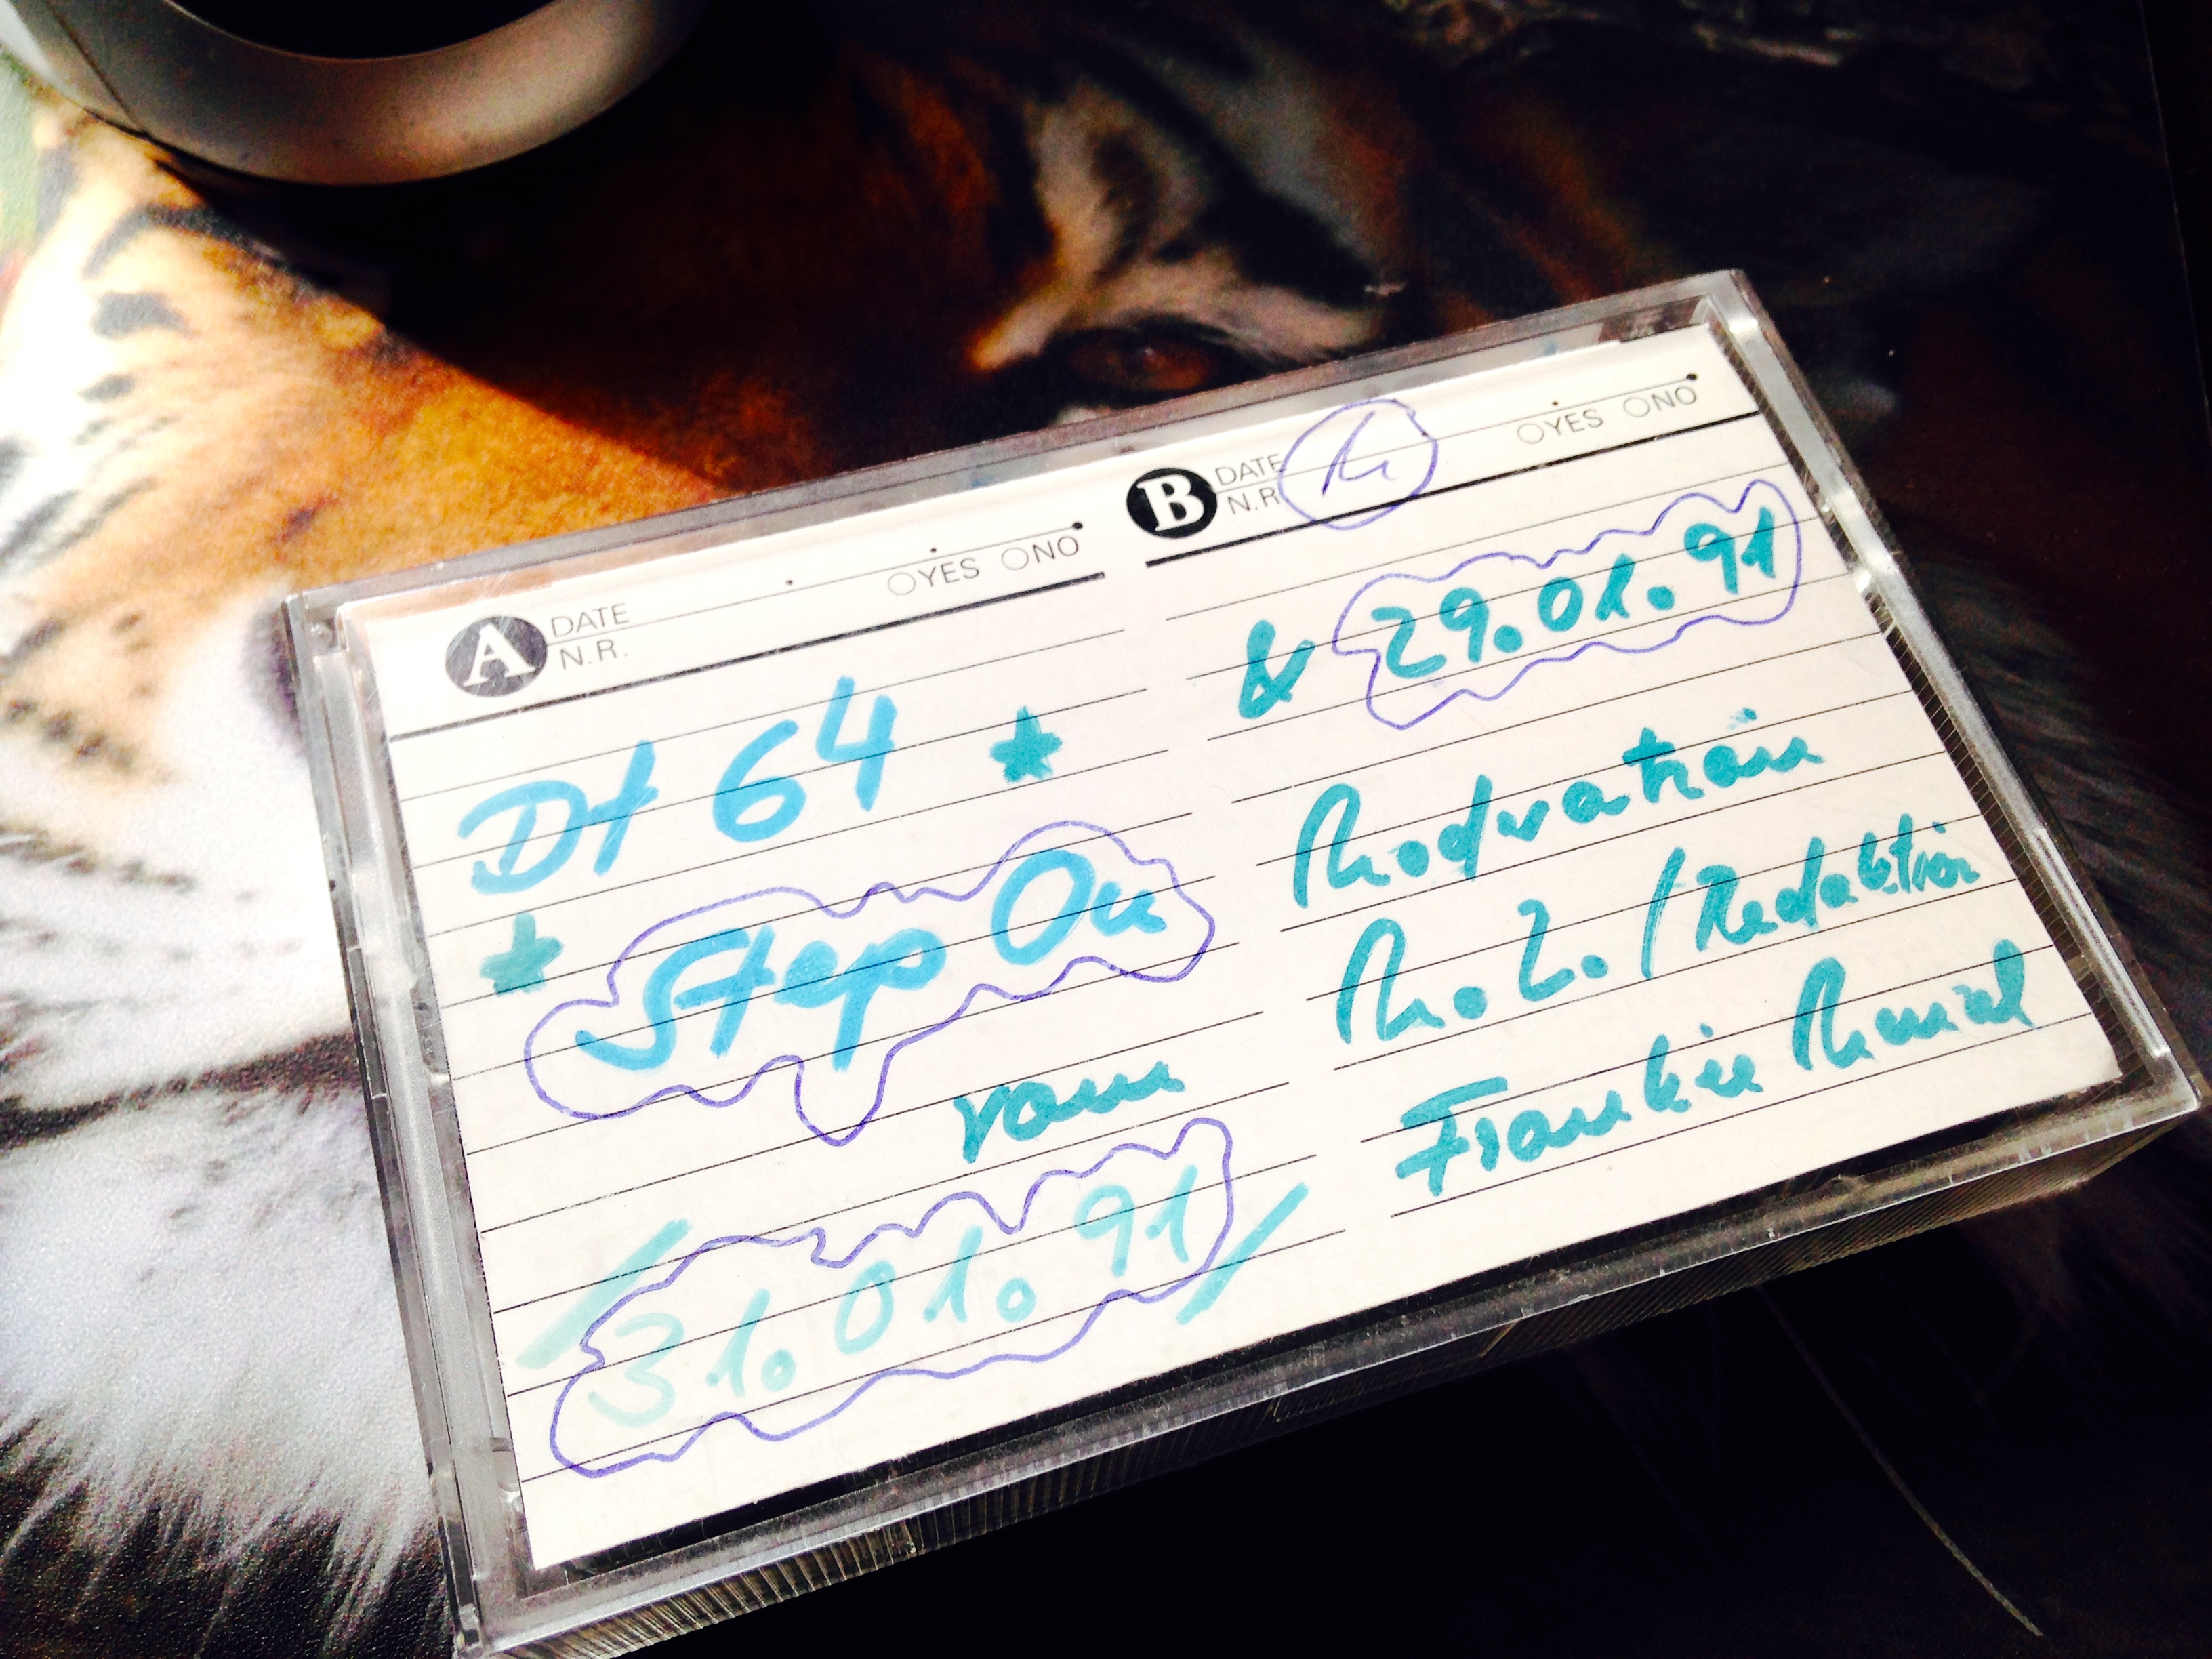 A DATE
N.R.
OYES ONO
Dt 64
Step On
vom
31.01.91
B DATE
N.R
OYES ONO
& 29.01.91
Moderation
M. Z. / Redaktion
Frankie